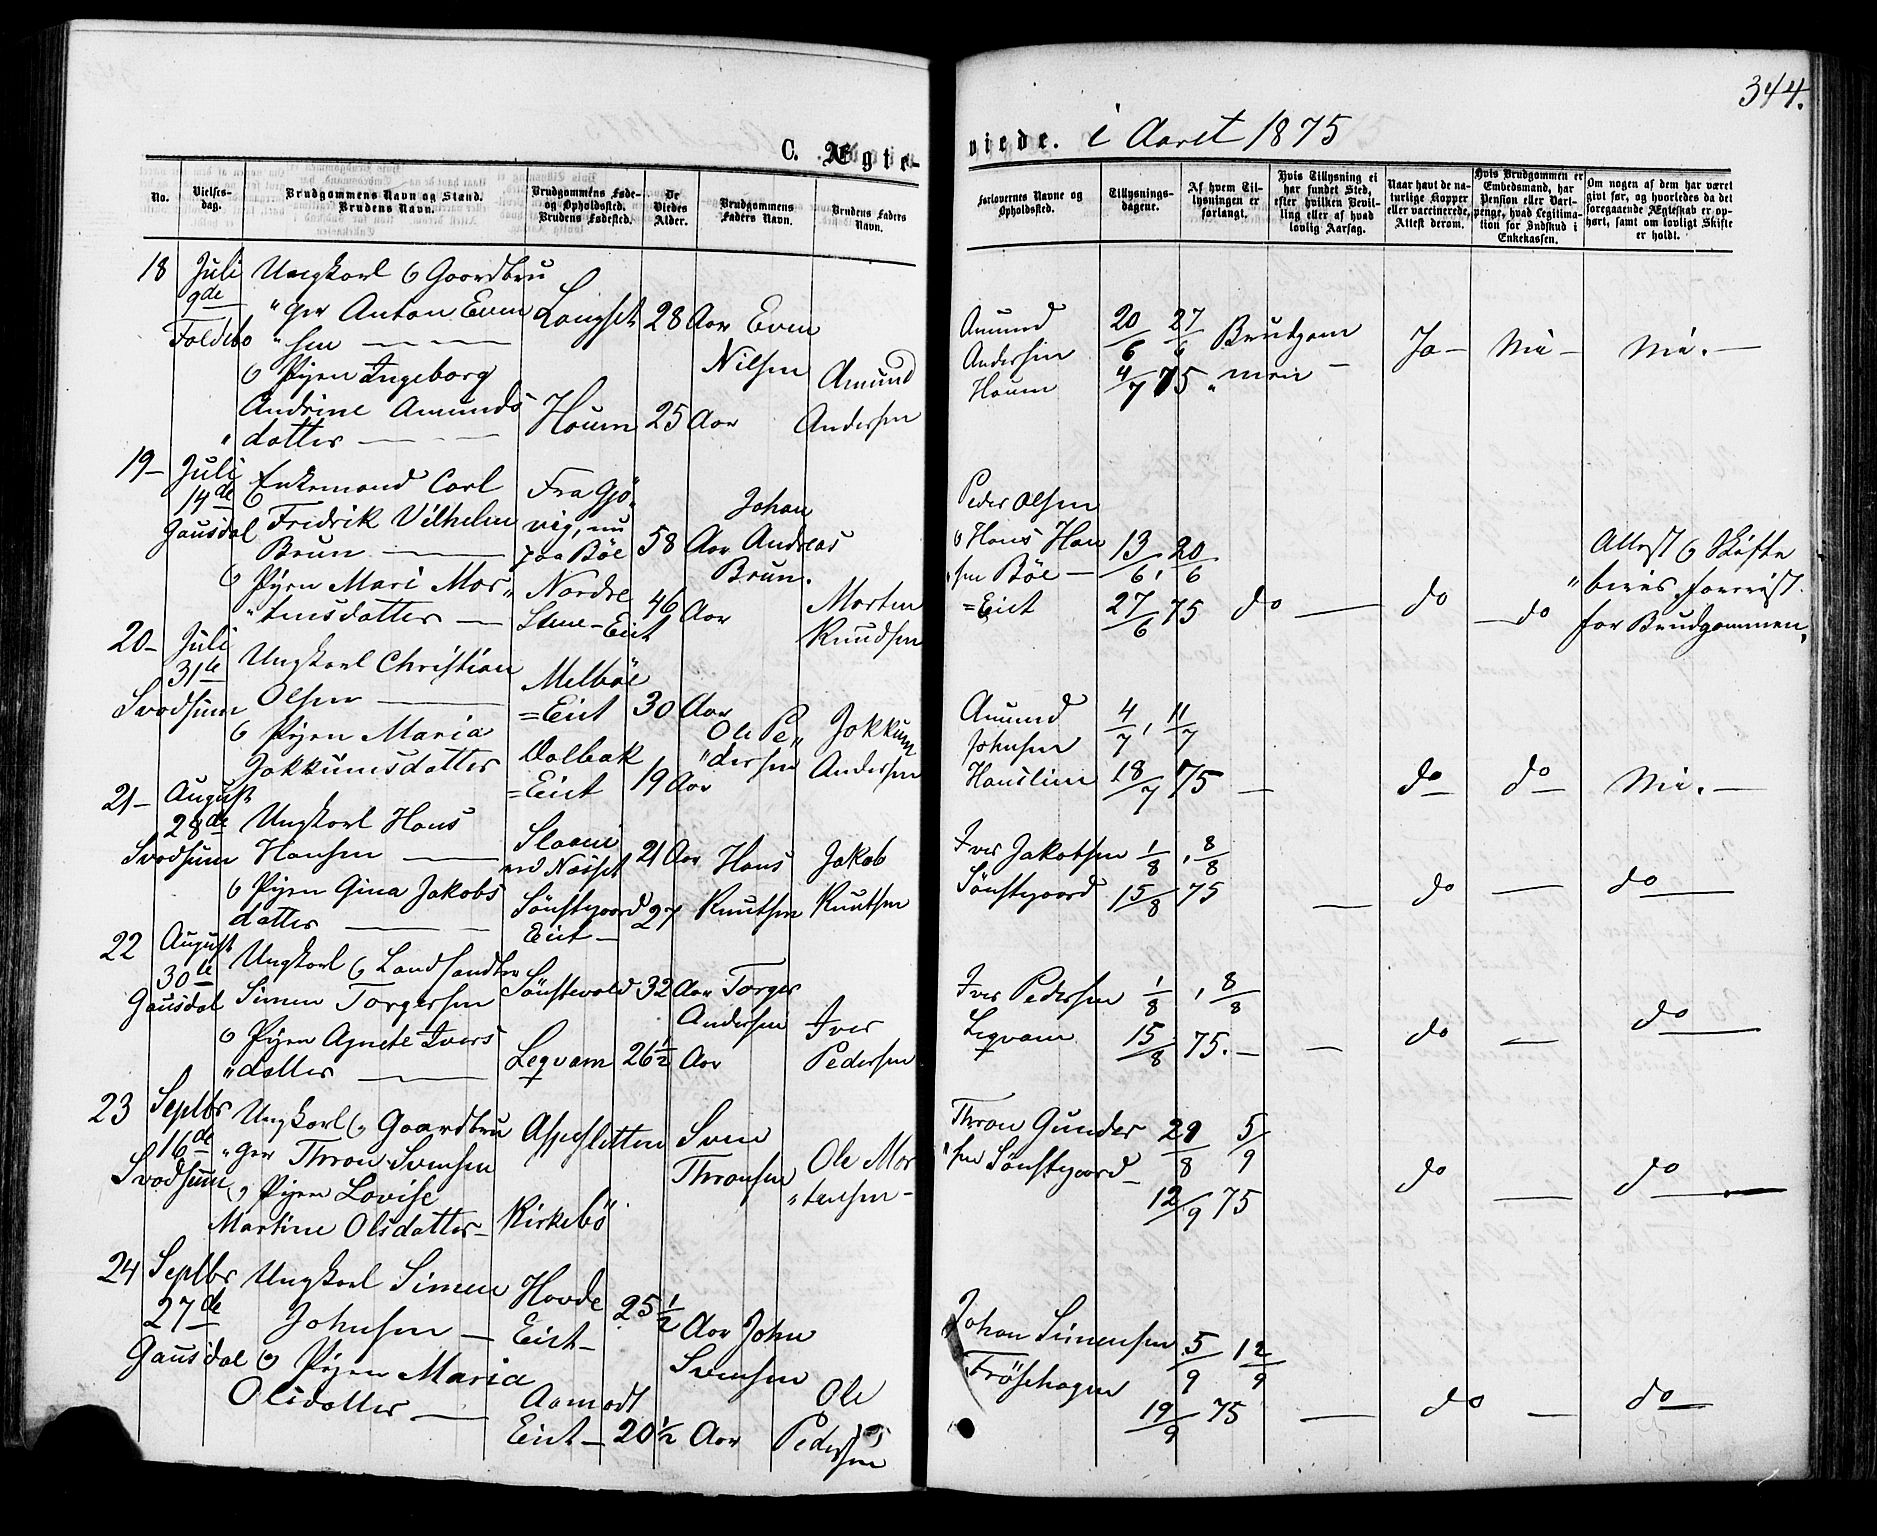 344.
C. Ægte-
viede. i Aaret 1875
No.
Vielses-
dag.
Brudgommens Navn og Stand.
Brudens Navn.
Brudgommens Føde-
og Opholdssted.
Brudens Fødested.
De
Viedes
Alder.
Brudgommens
Faders Navn.
Brudens Faders
Navn.
Forlovernes Navne og
Opholdssted.
Tillysnings-
dagene.
Af hvem Til-
lysningen er
forlangt.
Hvis Tillysning ei
har fundet Sted,
efter hvilken Bevil-
ling eller af hvad
lovlig Aarsag.
Naar havt de na-
turlige Kopper
eller vaccinerede,
Attest derom.
Hvis Brudgommen er
Embedsmand, har
Pension eller Vart-
penge, hvad Legitima-
tion for Indskud i
Enkekassen.
Om nogen af dem har været
givt før, og hvorledes da det
foregaaende Ægteskab er op-
hørt, samt om lovligt Skifte
er holdt.
18
Juli
9de
Foldebo
Ungkarl & Gaardbru
"ger Anton Even
"sen
& Pigen Ingeborg
Andrine Amunds
"datter
Longset
Houm
28 Aar
25 Aar
Even
Nilsen
Amund
Andersen
Amund
Andersen
Houm
20/6 27/6
4/7 75
Brudgom
"men
Ja - Nei - Nei. -
19-
Juli
14de
Gausdal
Enkemand Carl
Fredrik Vilhelm
Brun
& Pigen Mari Mor"
"tensdatter
Fra Gjö
vig, nu
paa Böe
Nordre
Steue-Eiet
58 Aar
46 Aar
Johan
Andreas
Brun.
Morten
Knudsen
Peder Olsen
& Hans Han
"sen Böe -
=Eiet
13/6, 20/6
27/6 75
do - do - do
Attest & Skifte
"bevis forevist
for Brudgommen,
20-
Juli
31te
Svadsum
Ungkarl Christian
Olsen
& Pigen Maria
Jokkumsdatter
Melböe
=Eiet
Dalbak
=Eiet
30 Aar
19 Aar
Ole Pe"
"dersen
Jokkum
Andersen
Amund
Johnsen
Hauslien
4/7, 11/7
18/7 75
- do do Nei. -
21-
August
28de
Svadsum
Ungkarl Hans
Hansen
& Pigen Gina Jakobs
datter
Slaaen
ved Næsset
Sönstegaard
Eiet -
21 Aar
27
Hans
Knutsen
Jakob
Knutsen
Iver Jakobsen
Sönstegaard
1/8, 8/8
15/8 75
- do - do
22
August
30te
Gausdal
Ungkarl & Landhandler
Simen Torgersen
& Pigen Agnete Ivers
"datter
Sönstevold
Leqvam
32 Aar
26½ Aar
Torger
Andersen
Iver
Pedersen
Iver Pedersen
Leqvam
1/8, 8/8
15/8 75. -
- do - do
23
Septbr
16de
Svadsum
Ungkarl & Gaardbru
"ger Thron Svensen
& Pigen Lovise
Martine Olsdatter -
Aspesletten
Kirkebö
Sven
Thronsen
Ole Mor
"tensen -
Thron Gunder
"sen Sönstegaard -
29/8 5/9
12/9 75
do - do
24
Septbr
27de
Gausdal
Ungkarl Simen
Johnsen -
& Pigen Maria
Olsdatter
Hovde
Eiet -
Aamodt
Eiet -
25½ Aar
20½ Aar
John
Svensen
Ole
Pedersen
Johan Simensen
Frösehagen
5/9 12/9
19/9 75
- do - do